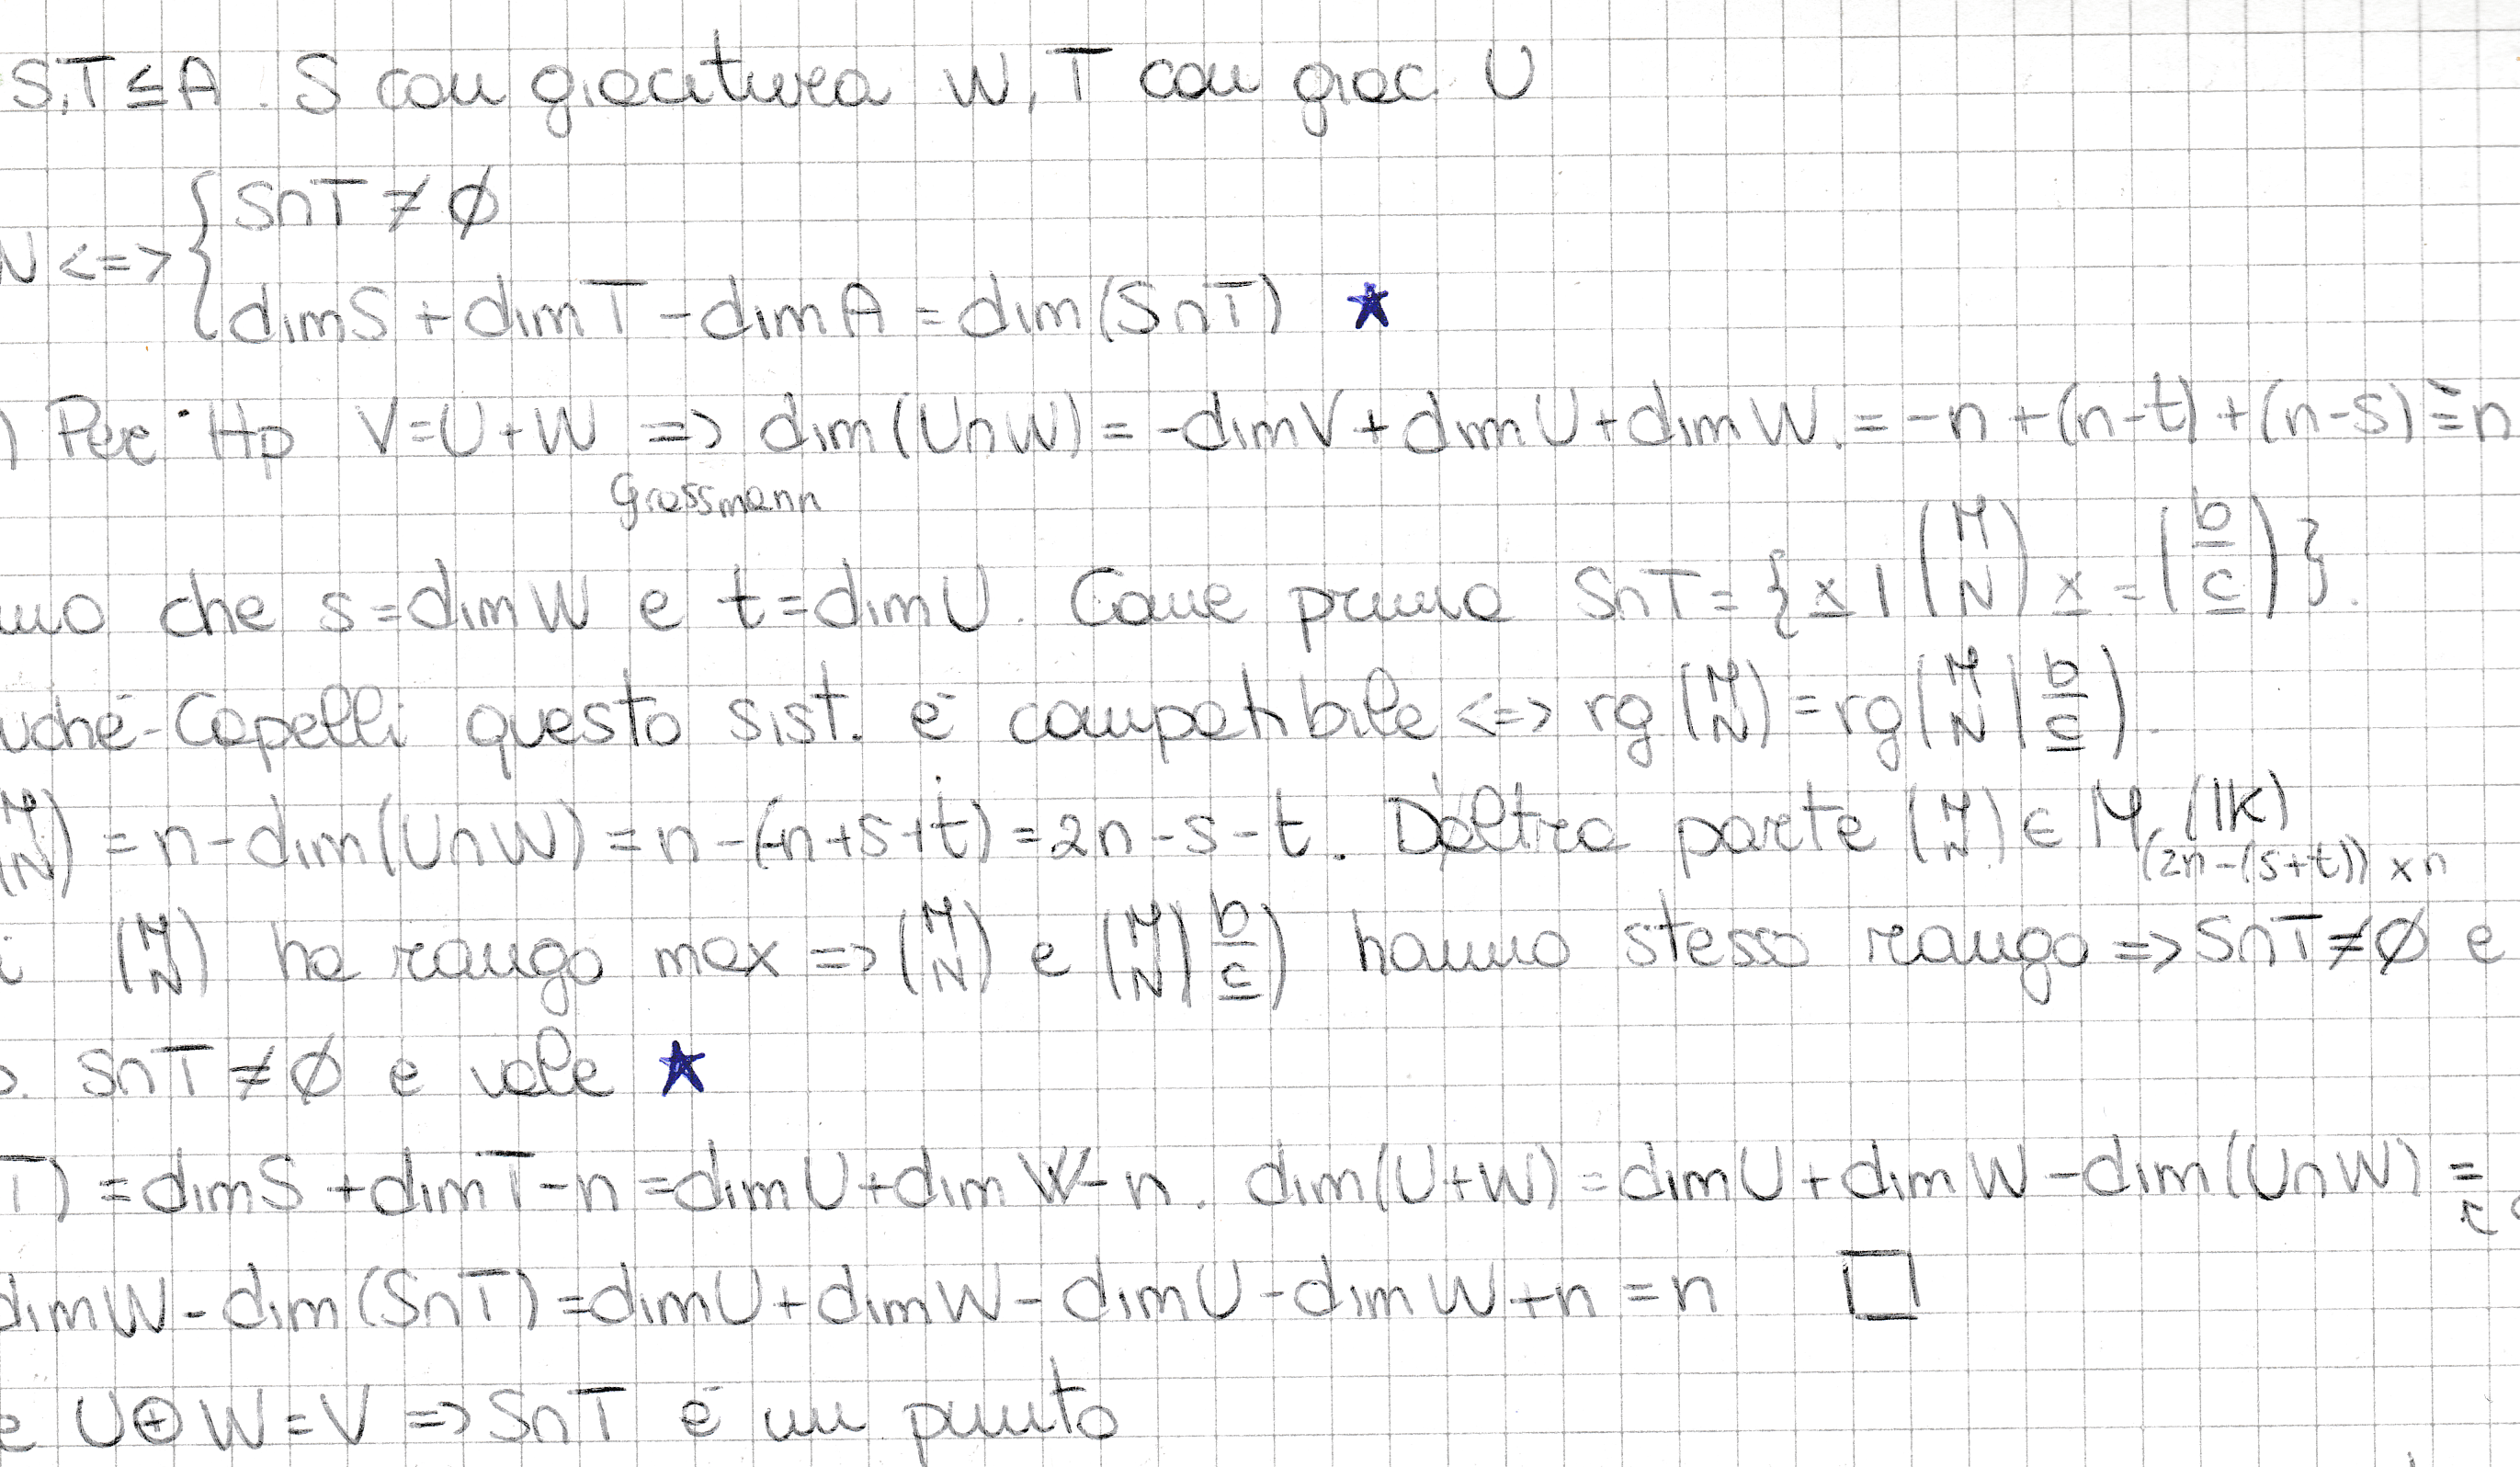 S,T ≤ A. S con giacitura W, T con giac. U
S∩T ≠ ∅
W <=> {
dim S + dim T - dim A = dim(S∩T) ★
) Per Hp V=U+W => dim(U∩W) = -dim V + dim U + dim W. = -n + (n-t) + (n-s) = n
Grassmann
mo che s=dim W e t=dim U. Come prima S∩T = {x | (M N) x = (b c)}.
uché-Capelli questo sist. è compatibile <=> rg (M N) = rg (M N | b c).
(M N) = n - dim(U∩W) = n - (-n+s+t) = 2n-s-t. D'altra parte (M N) ∈ M (2n-(s+t)) x n (IK)
i (M N) ha rango max => (M N) e (M N | b c) hanno stesso rango => S∩T ≠ ∅ e
o. S∩T ≠ ∅ e vale ★
T) = dim S + dim T - n = dim U + dim W - n. dim(U+W) = dim U + dim W - dim(U∩W) =
dim W - dim(S∩T) = dim U + dim W - dim U - dim W + n = n □
e U⊕W = V => S∩T è un punto